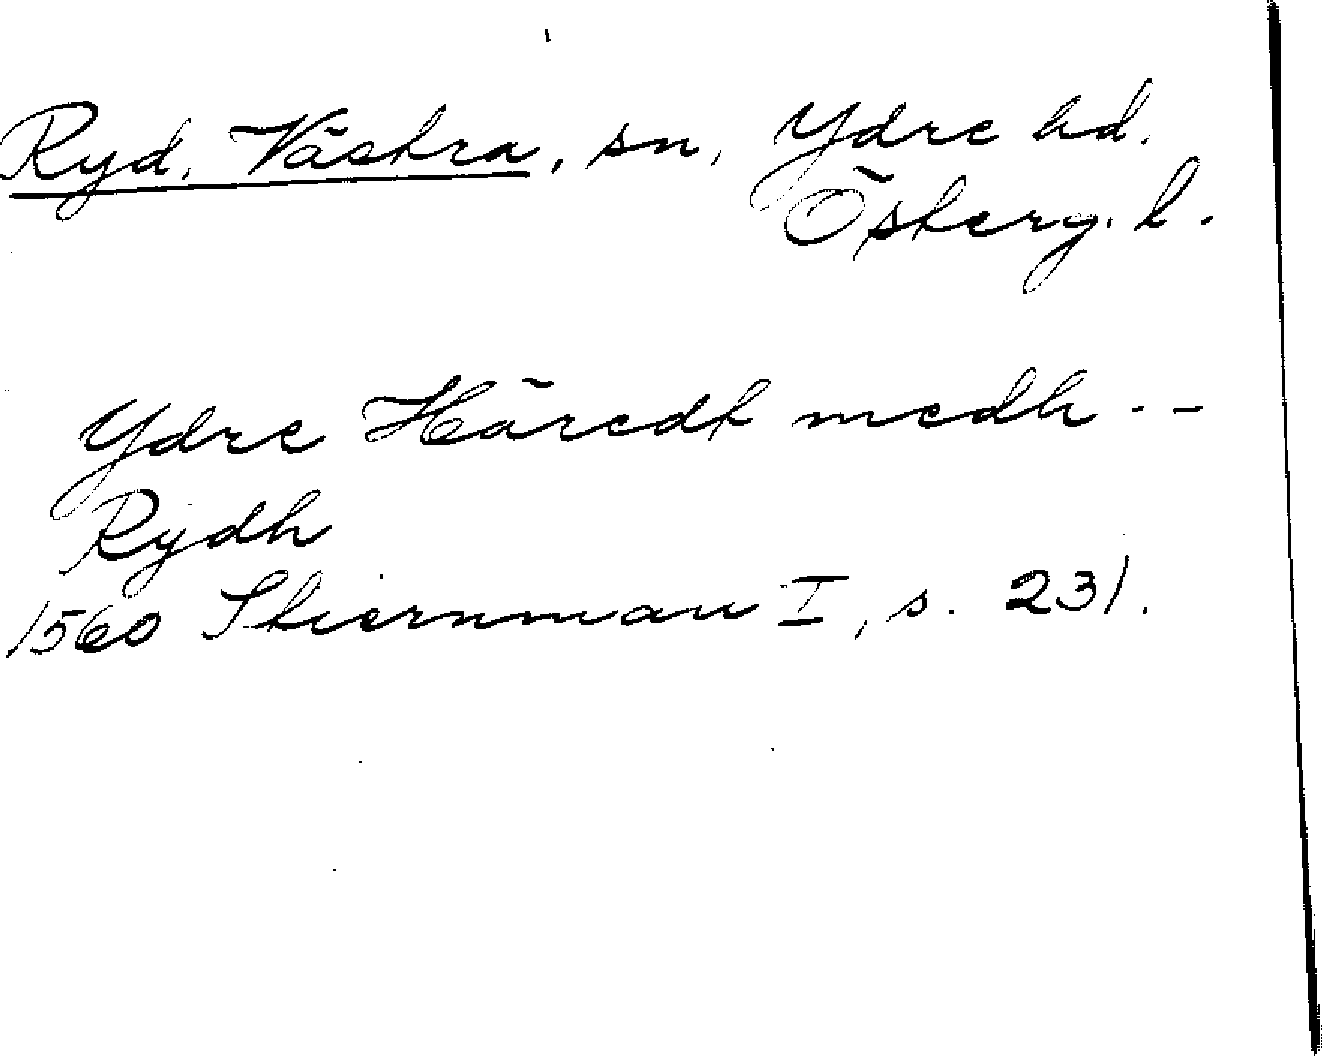 Ryd, Västra, sn, Ydre hd.
Österg. l.
Ydre Häredt medh - -
Rydh
1560 Stiernman I, s. 231.